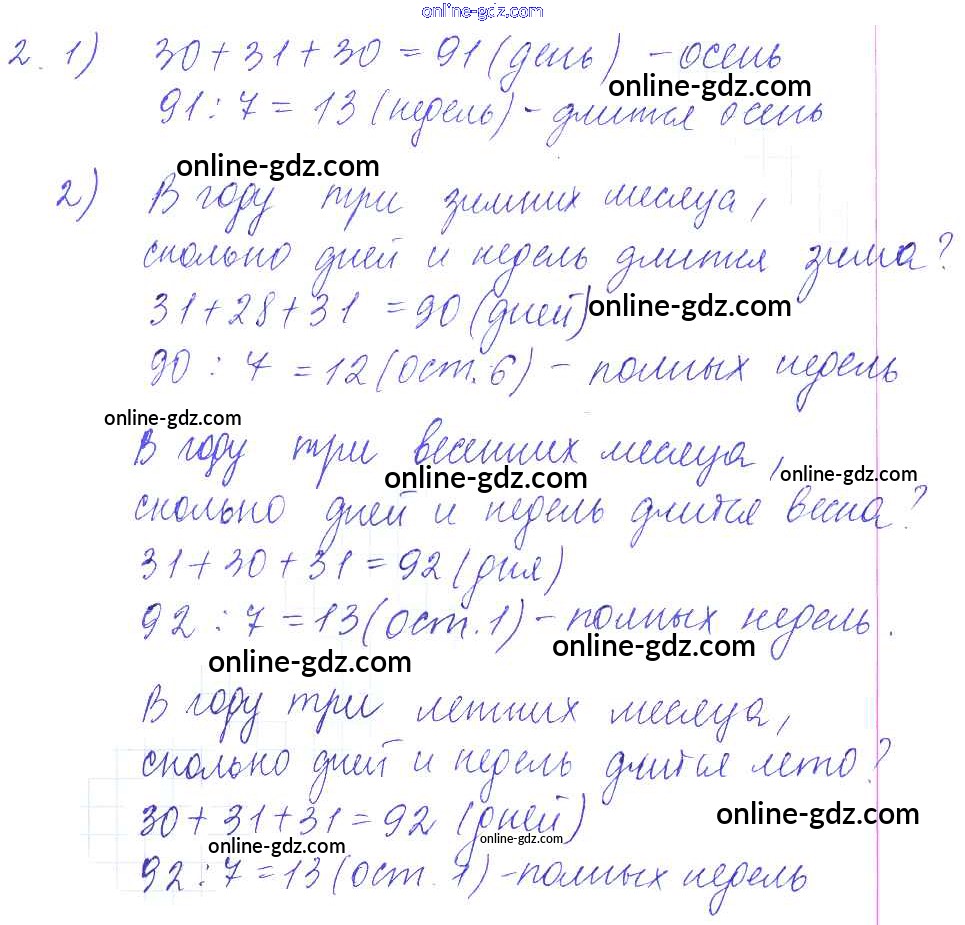 online-gdz.com
2. 1) 30 + 31 + 30 = 91 (день) - осень
online-gdz.com
91 : 7 = 13 (недель) - длится осень
online-gdz.com
2) В году три зимних месяца,
сколько дней и недель длится зима?
31 + 28 + 31 = 90 (дней)
online-gdz.com
90 : 7 = 12 (ост. 6) - полных недель
online-gdz.com
В году три весенних месяца,
online-gdz.com
online-gdz.com
сколько дней и недель длится весна?
31 + 30 + 31 = 92 (дня)
92 : 7 = 13 (ост. 1) - полных недель.
online-gdz.com
online-gdz.com
В году три летних месяца,
сколько дней и недель длится лето?
30 + 31 + 31 = 92 (дней)
online-gdz.com
online-gdz.com
online-gdz.com
92 : 7 = 13 (ост. 1) - полных недель